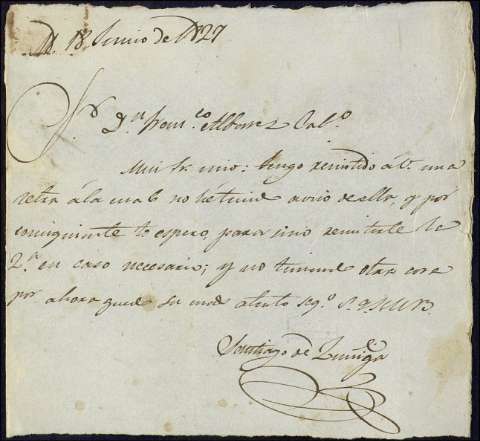 18 Junio de 1827
Sr. Dn. Franco. Alvarez Calo.
Mui Sr. mio: tengo remitido á V. una
letra á la cual no hé tenido aviso de ella, y por
consiguiente lo espero, para sino remitirle la
2a. en caso necesario; y no teniendo otra cosa
por ahora queda su mas atento Sego. S. Q.S.M.B.
Santiago de Zuñiga